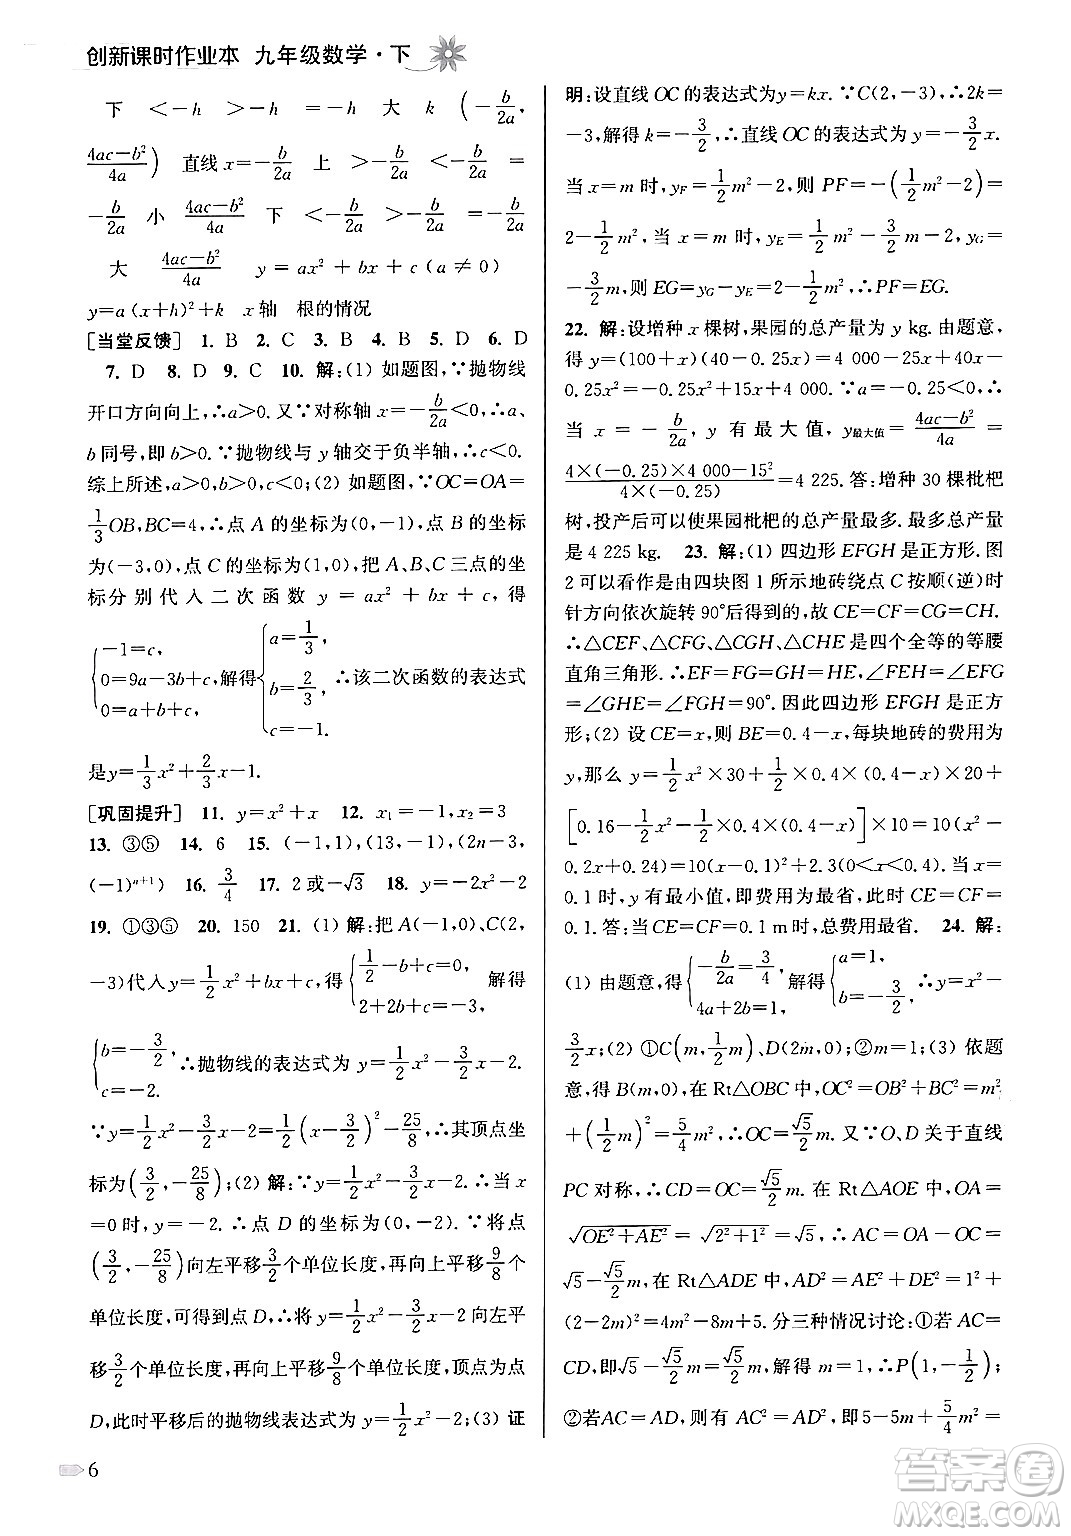 创新课时作业本 九年级数学·下
下 <-h >-h =-h 大 k (-b/2a,
(4ac-b²)/4a) 直线x=-b/2a 上 >-b/2a <-b/2a =
-b/2a 小 (4ac-b²)/4a 下 <-b/2a >-b/2a =-b/2a
大 (4ac-b²)/4a y=ax²+bx+c(a≠0)
y=a(x+h)²+k x轴 根的情况
[当堂反馈] 1. B 2. C 3. B 4. B 5. D 6. D
7. D 8. D 9. C 10. 解:(1) 如题图,∵抛物线
开口方向向上,∴a>0. 又∵对称轴x=-b/2a<0,∴a、
b同号,即b>0. ∵抛物线与y轴交于负半轴,∴c<0.
综上所述,a>0,b>0,c<0;(2) 如题图,∵OC=OA=
1/3OB,BC=4,∴点A的坐标为(0,-1),点B的坐标
为(-3,0),点C的坐标为(1,0),把A、B、C三点的坐
标分别代入二次函数 y=ax²+bx+c 中,得
{-1=c, 0=9a-3b+c, 0=a+b+c, 解得{a=1/3, b=2/3, c=-1. ∴该二次函数的表达式
是y=1/3x²+2/3x-1.
[巩固提升] 11. y=x²+x 12. x₁=-1,x₂=3
13. ③⑤ 14. 6 15. (-1,1),(13,-1),(2n-3,
(-1)ⁿ⁺¹) 16. 3/4 17. 2或-√3 18. y=-x²-2
19. ①③⑤ 20. 150 21. (1) 解:把A(-1,0)、C(2,
-3)代入y=1/2x²+bx+c,得{1/2-b+c=0, 2+2b+c=-3, 解得
{b=-3/2, c=-2. ∴抛物线的表达式为y=1/2x²-3/2x-2.
∵y=1/2x²-3/2x-2=1/2(x-3/2)²-25/8,∴其顶点坐
标为(3/2,-25/8);(2) 解:∵y=1/2x²-3/2x-2. ∴当x
=0时,y=-2. ∴点D的坐标为(0,-2). ∵将点
(3/2,-25/8)向左平移3/2个单位长度,再向上平移9/8个
单位长度,可得到点D,∴将y=1/2x²-3/2x-2向左平
移3/2个单位长度,再向上平移9/8个单位长度,顶点为点
D,此时平移后的抛物线表达式为y=1/2x²-2;(3) 证
明:设直线OC的表达式为y=kx. ∵C(2,-3),∴2k=
-3,解得k=-3/2,∴直线OC的表达式为y=-3/2x.
当x=m时,y_F=1/2m²-2,则 PF=-(1/2m²-2)=
2-1/2m²,当x=m时,y_E=1/2m²-3/2m-2,y_G=
-3/2m,则EG=y_G-y_E=2-1/2m²,∴PF=EG.
22. 解:设增种x棵树,果园的总产量为y kg. 由题意,
得y=(100+x)(40-0.25x)=4 000-25x+40x-
0.25x²=-0.25x²+15x+4 000. ∵a=-0.25<0,∴
当x=-b/2a,y有最大值,y最大值=(4ac-b²)/4a=
(4×(-0.25)×4 000-15²)/(4×(-0.25))=4 225. 答:增种30棵枇杷
树,投产后可以使果园枇杷的总产量最多. 最多总产量
是4 225 kg. 23. 解:(1) 四边形EFGH是正方形. 图
2可以看作是由四块图1所示地砖绕点C按顺(逆)时
针方向依次旋转90°后得到的,故CE=CF=CG=CH.
∴△CEF、△CFG、△CGH、△CHE是四个全等的等腰
直角三角形. ∴EF=FG=GH=HE,∠FEH=∠EFG
=∠GHE=∠FGH=90°. 因此四边形EFGH是正方
形;(2) 设CE=x,则BE=0.4-x,每块地砖的费用为
y,那么y=1/2x²×30+1/2×0.4×(0.4-x)×20+
[0.16-1/2x²-1/2×0.4×(0.4-x)]×10=10(x²-
0.2x+0.24)=10(x-0.1)²+2.3(0<x<0.4). 当x=
0.1时,y有最小值,即费用为最省,此时CE=CF=
0.1. 答:当CE=CF=0.1 m时,总费用最省. 24. 解:
(1) 由题意,得{-b/2a=3/4, 4a+2b=1, 解得{a=1, b=-3/2. ∴y=x²-
3/2x;(2) ①C(m,1/2m)、D(2m,0);②m=1;(3) 依题
意,得B(m,0),在Rt△OBC中,OC²=OB²+BC²=m²
+(1/2m)²=5/4m²,∴OC=√5/2m. 又∵O、D关于直线
PC对称,∴CD=OC=√5/2m. 在Rt△AOE中,OA=
√(OE²+AE²)=√(2²+1²)=√5,∴AC=OA-OC=
√5-√5/2m,在Rt△ADE中,AD²=AE²+DE²=1²+
(2-2m)²=4m²-8m+5. 分三种情况讨论:①若AC=
CD,即√5-√5/2m=√5/2m,解得m=1,∴P(1,-1/2);
②若AC=AD,则有AC²=AD²,即5-5m+5/4m²=
6
答案圈
MXQE.COM